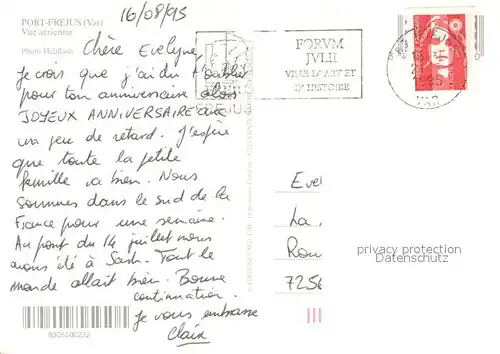 PORT-FREJUS (Var)
Vue aérienne
16/08/95
Chère Evelyne,
Je crois que j'ai du t'oublier
pour ton anniversaire alors
JOYEUX ANNIVERSAIRE avec
un peu de retard. J'espère
que toute la petite
famille va bien. Nous
sommes dans le sud de la
France pour une semaine.
Au pont du 14 juillet nous
avons été à Tout le
monde allait bien. Bonne
continuation.
Je vous embrasse
Claix
FORVM
JVLII
VILLE D'ART ET
D'HISTOIRE
Evel
La.
Rou
7256
privacy protection
Datenschutz
8306100232